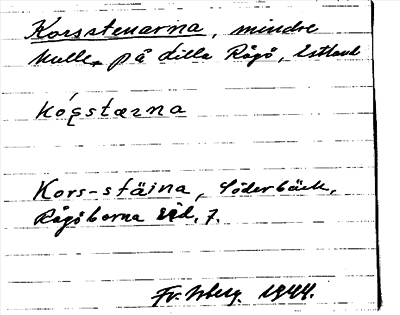 Korsstenarna, mindre
kulle på Lilla Rågö, Estland
kóʂstærna
Kors-stäina, Söderbäck,
Rågöborna sid. 7.
Fr. Wberg. 1944.